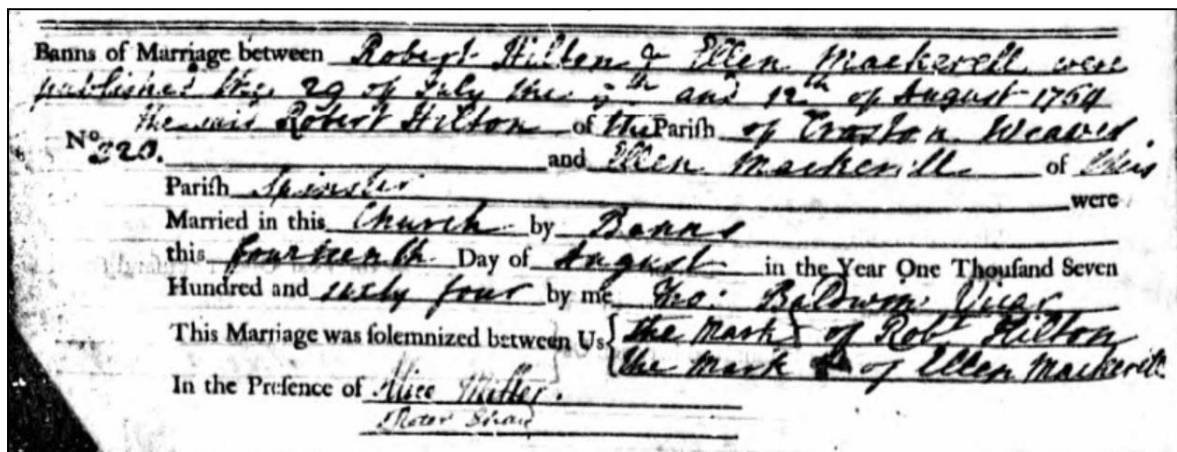 Banns of Marriage between Robert Hilton & Ellen Mackerell were
published the 29 of July the 5th and 12th of August 1764
No 220. the said Robert Hilton of the Parish of Croston Weaver
and Ellen Mackerell of this
Pariſh Spinster were
Married in this Church by Banns
this fourteenth Day of August in the Year One Thouſand Seven
Hundred and sixty four by me Tho: Baldwin Vicar
This Marriage was ſolemnized between Us { the Mark of Robt Hilton
the Mark of Ellen Mackerell
In the Preſence of Alice Miller.
Peter